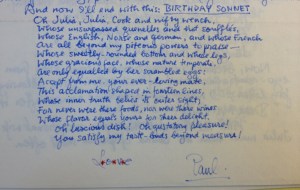 And now I'll end with this BIRTHDAY SONNET
Oh Julia, Julia, Cook and nifty wench,
Whose unsurpassed quenelles and hot soufflés,
Whose English, Norse and German, and whose French
Are all beyond my piteous powers to praise —
Whose sweetly-rounded bottom and whose legs,
Whose gracious face, whose nature temperate,
Are only equalled by her scrambled eggs:
Accept from me, your ever-loving mate,
This acclamation shaped in fourteen lines
Whose inner truth belies its outer sight;
For never were there foods, nor were there wines
Whose flavor equals yours for sheer delight.
Oh luscious dish! Oh gustatory pleasure!
You satisfy my taste-buds beyond measure!
Love
Paul